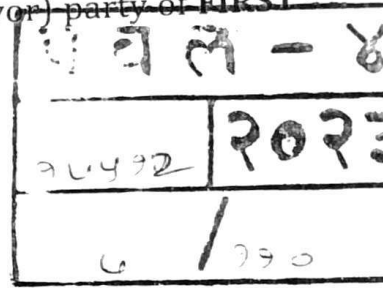 vor) party of FIRST
पवल - ४
१५५१२ २०२३
५ / ११०